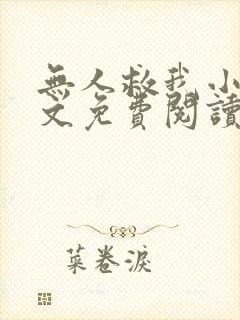 無人救我小
文免費閱讀
菜卷淚